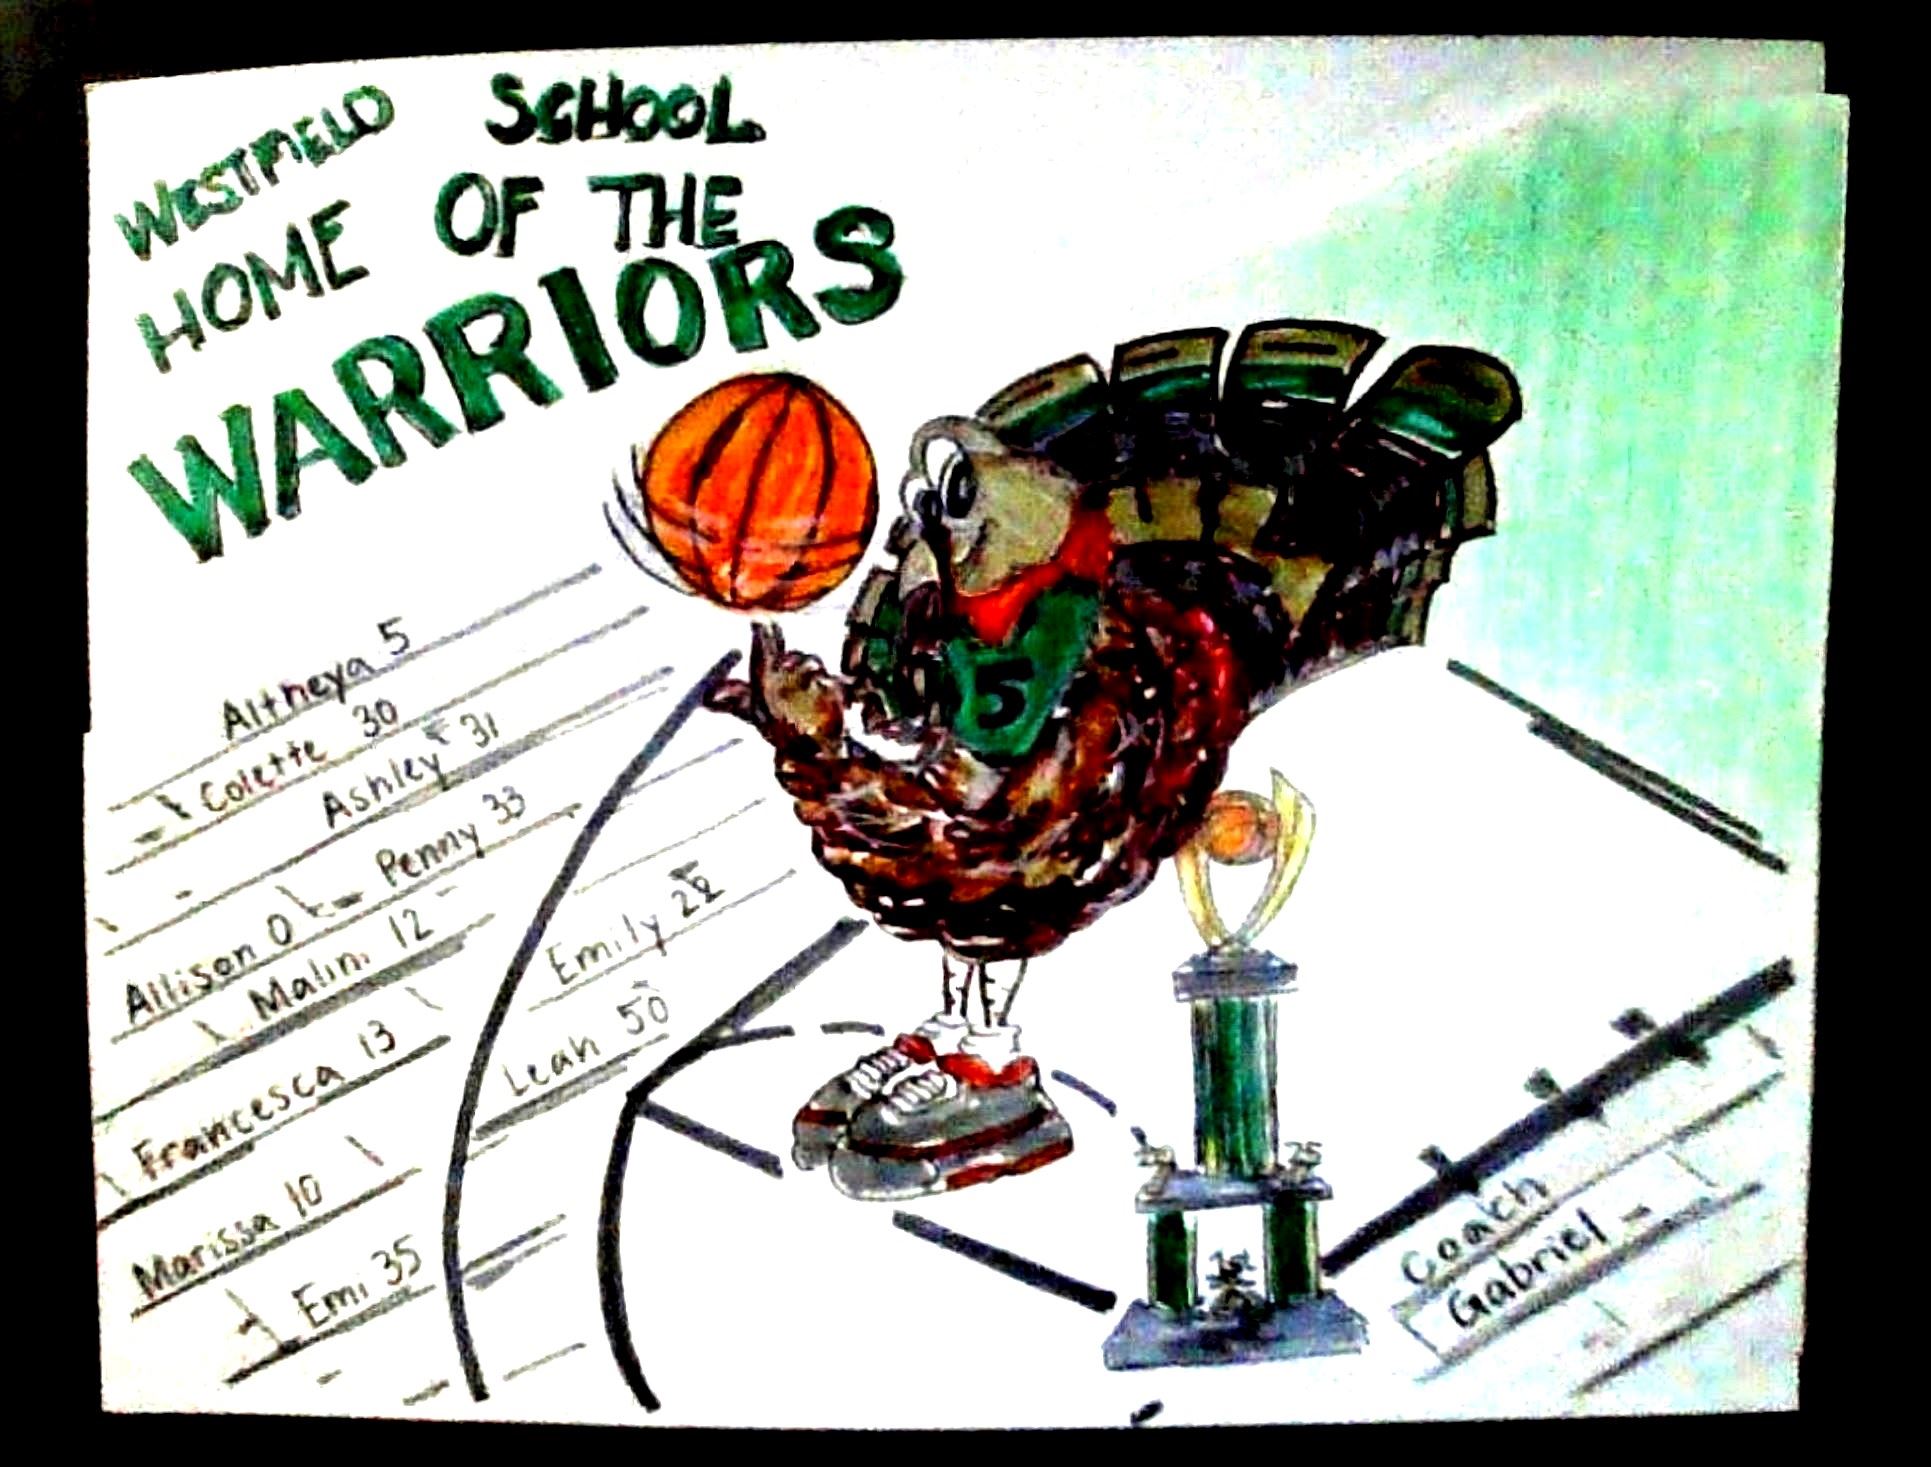 WESTFIELD SCHOOL
HOME OF THE
WARRIORS
5
Altheya 5
Colette 30
Ashley 31
Penny 33
Allison 0
Malini 12
Francesca 13
Marissa 10
Emi 35
Emily
Leah 50
25
1st
Coach
Gabriel